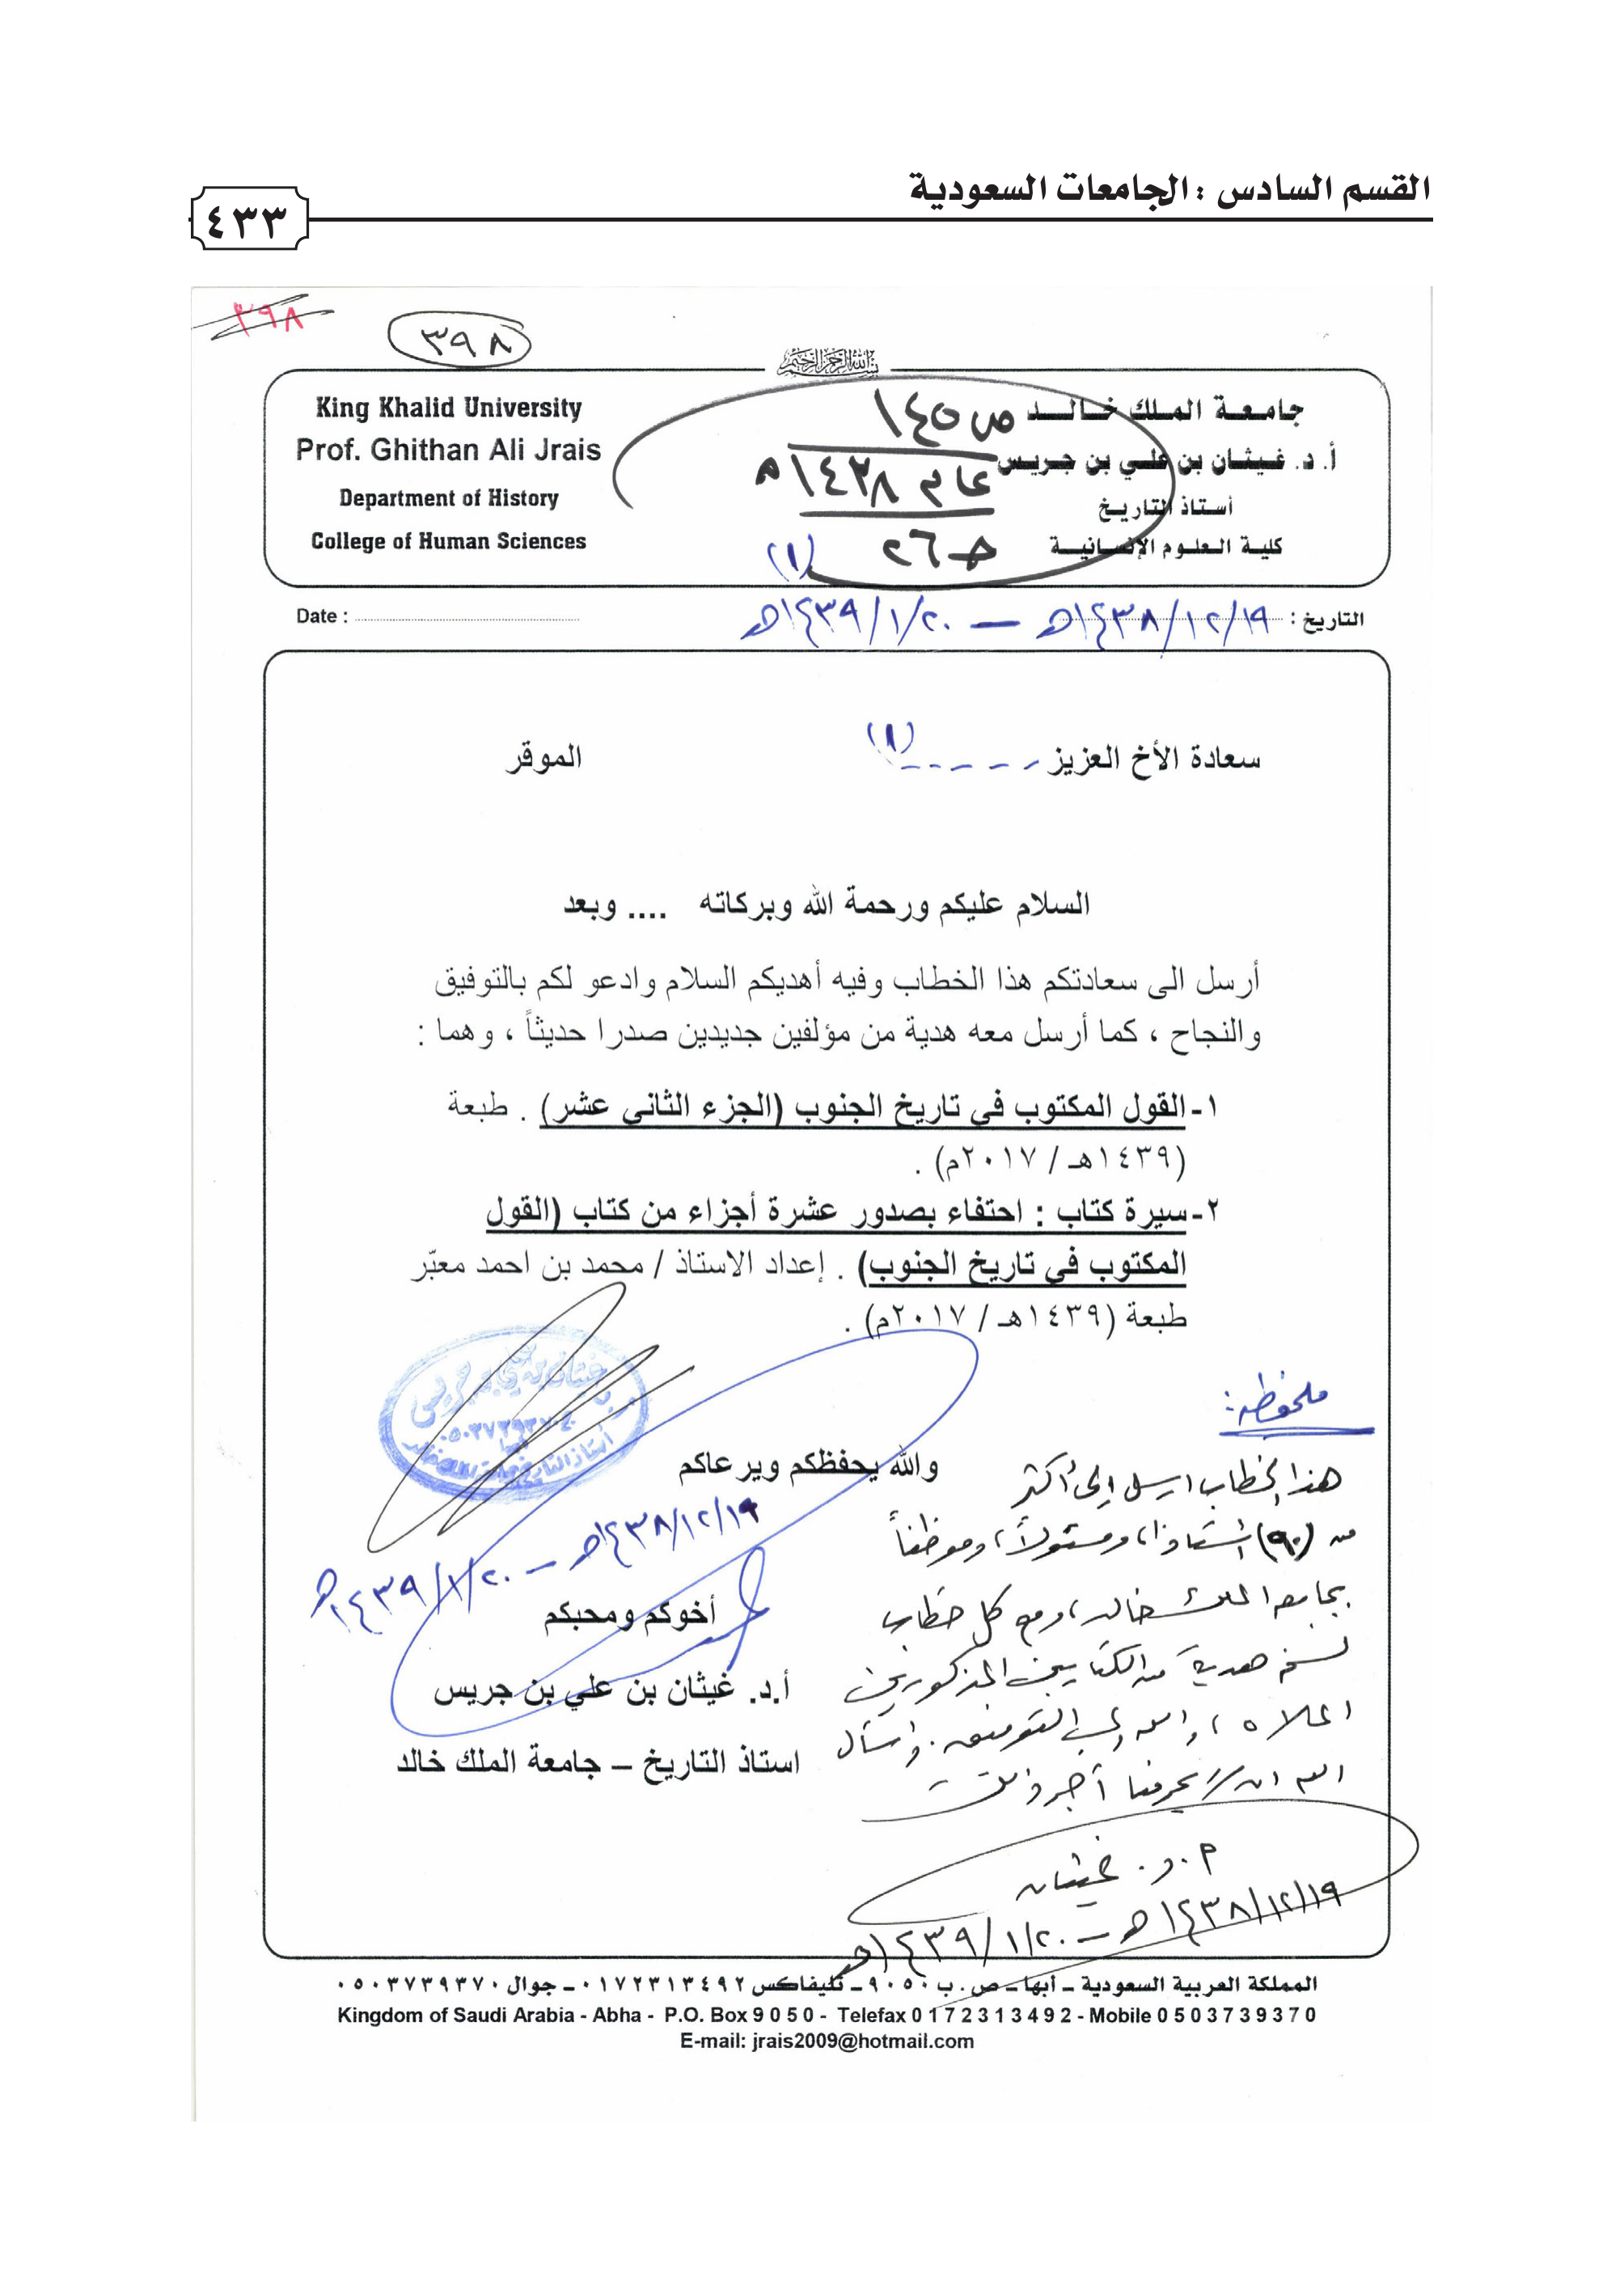 القسم السادس : الجامعات السعودية
٤٣٣
٣٩٨
٣٩٨
بسم الله الرحمن الرحيم
جامعة الملك خالد
أ. د. غيثان بن علي بن جريس
أستاذ التاريخ
كلية العلوم الإنسانية
King Khalid University
Prof. Ghithan Ali Jrais
Department of History
College of Human Sciences
ص ١٤٥
عام ١٤٣٨هـ
ج ٢٦
(١)
التاريخ : ١٤٣٨/١٢/١٩هـ — ١٤٣٩/١/٢٠هـ
Date :
سعادة الأخ العزيز (١) الموقر
السلام عليكم ورحمة الله وبركاته .... وبعد
أرسل الى سعادتكم هذا الخطاب وفيه أهديكم السلام وادعو لكم بالتوفيق
والنجاح ، كما أرسل معه هدية من مؤلفين جديدين صدرا حديثاً ، وهما :
١- القول المكتوب في تاريخ الجنوب (الجزء الثاني عشر) . طبعة
(١٤٣٩هـ / ٢٠١٧م) .
٢- سيرة كتاب : احتفاء بصدور عشرة أجزاء من كتاب (القول
المكتوب في تاريخ الجنوب) . إعداد الاستاذ / محمد بن احمد معبّر
طبعة (١٤٣٩هـ / ٢٠١٧م) .
والله يحفظكم ويرعاكم
١٤٣٨/١٢/١٩هـ — ١٤٣٩/١/٢٠هـ
أخوكم ومحبكم
أ.د. غيثان بن علي بن جريس
استاذ التاريخ – جامعة الملك خالد
ملحوظة:
هذا الخطاب ارسل إلى أكثر
من (٩٠) استاذا، ومسئولاً، وموظفاً
بجامعة الملك خالد، ومع كل خطاب
نسخ هدية من الكتابين المذكورين
اعلاه، والله ولي التوفيق. وأسأل
الله ان لا يحرمنا أجر ذلك
أ.د. غيثان
١٤٣٨/١٢/١٩هـ — ١٤٣٩/١/٢٠هـ
المملكة العربية السعودية – أبها – ص. ب ٩٠٥٠ – تليفاكس ٠١٧٢٣١٣٤٩٢ – جوال ٠٥٠٣٧٣٩٣٧٠
Kingdom of Saudi Arabia - Abha - P.O. Box 9050 - Telefax 0172313492 - Mobile 0503739370
E-mail: jrais2009@hotmail.com